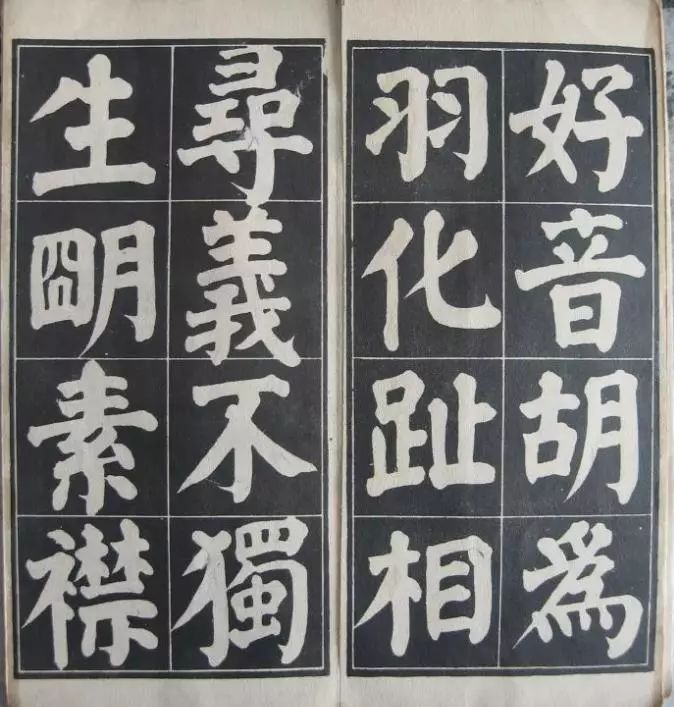 好音胡為
羽化趾相
尋義不獨
生朙素襟